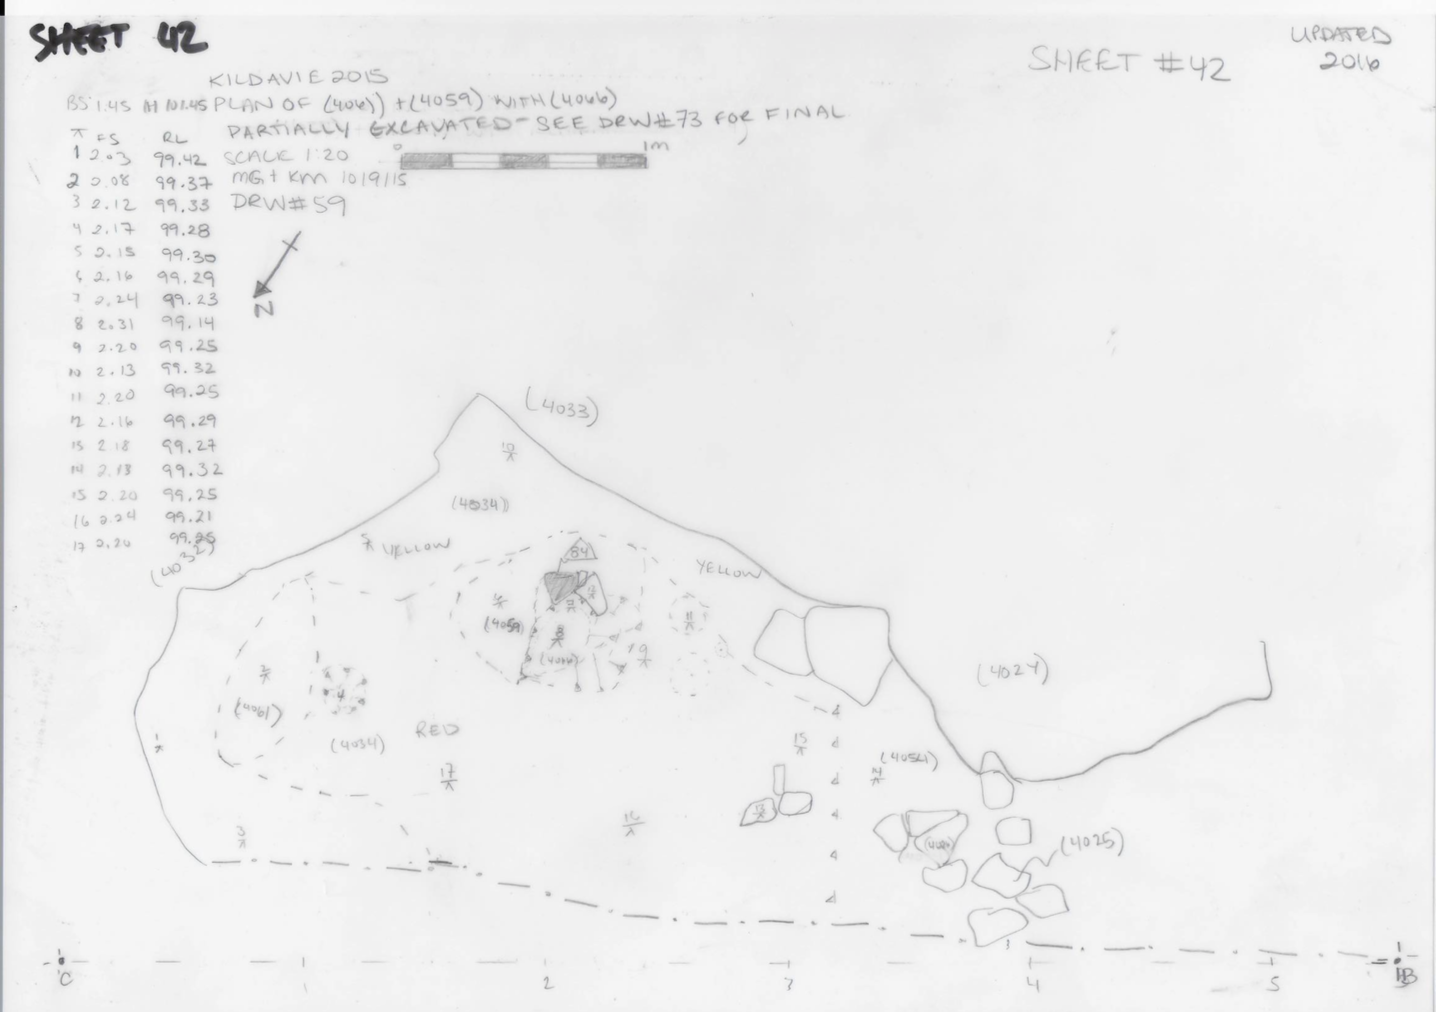 SHEET 42
SHEET #42
UPDATED
2016
KILDAVIE 2015
BS 1.45 HI 101.45 PLAN OF (4061) + (4059) WITH (4066)
PARTIALLY EXCAVATED - SEE DRW#73 FOR FINAL
SCALE 1:20
0 1m
MG + KM 10/9/15
DRW#59
N
π FS RL
1 2.03 99.42
2 2.08 99.37
3 2.12 99.33
4 2.17 99.28
5 2.15 99.30
6 2.16 99.29
7 2.24 99.23
8 2.31 99.14
9 2.20 99.25
10 2.13 99.32
11 2.20 99.25
12 2.16 99.29
13 2.18 99.27
14 2.13 99.32
15 2.20 99.25
16 2.24 99.21
17 2.20 99.25
(4032)
(4033)
10
(4034)
5
YELLOW
84
YELLOW
12
(4059)
8
(4066)
9
11
2
(4061)
4
(4034)
RED
(4024)
1
17
15
14
(4054)
13
16
3
(4025)
C
2
3
4
5
B